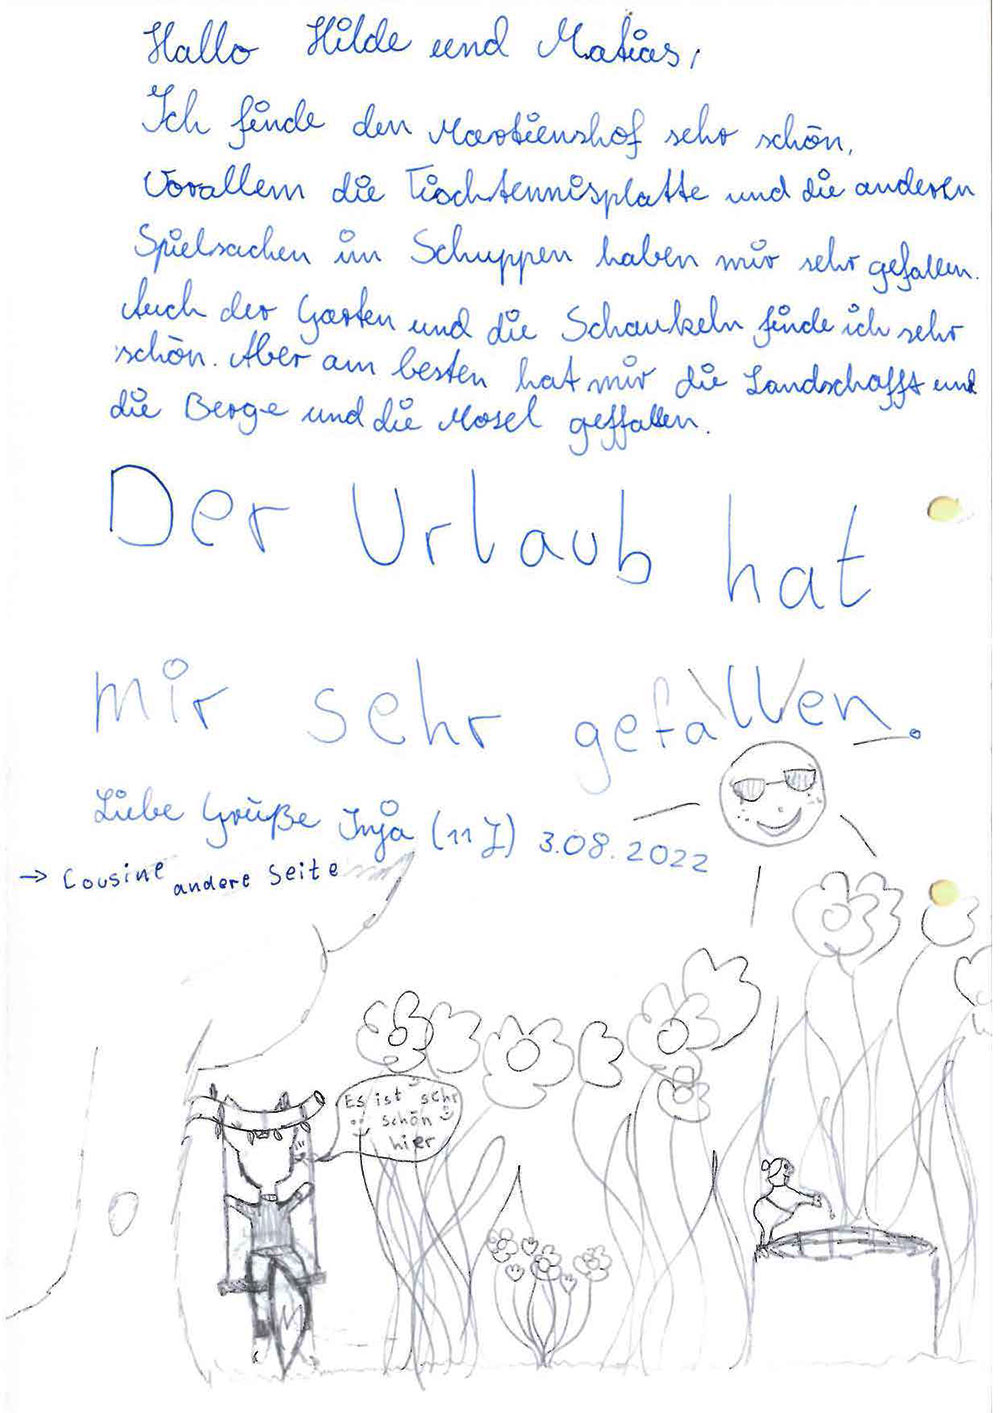 Hallo Hilde und Matias,
Ich finde den Martienshof sehr schön.
Vorallem die Tischtennisplatte und die anderen
Spielsachen im Schuppen haben mir sehr gefallen.
Auch der Garten und die Schaukeln finde ich sehr
schön. Aber am besten hat mir die Landschafft und
die Berge und die Mosel geffallen.
Der Urlaub hat
mir sehr gefallen.
Liebe Grüße Inja (11 J) 3.08.2022
→ Cousine andere Seite
Es ist sehr
schön
hier